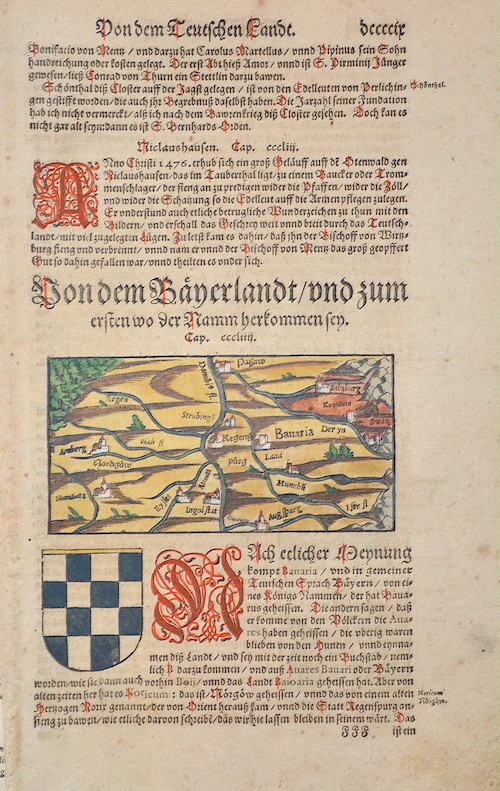 Von dem Teutschen Landt. dcccclx
Bonifacio von Mentz / vnd darzu hat Carolus Martellus / vnnd Pipinus sein Sohn
handreichung oder kosten gelegt. Der erst Abt hieß Amor / vnnd ist S. Pirminij Jünger
gewesen / ließ Conrad von Thurn ein Stettlin darzu bawen.
Schönthal diß Closter auff der Jagst gelegen / ist von den Edelleuten von Perlichin-
Schönthal.
gen gestifft worden / die auch jhr Begrebnuß daselbst haben. Die Jarzahl seiner Fundation
hab ich nicht vermerckt / alß ich nach dem Bawrenkrieg diß Closter gesehen. Doch kan es
nicht gar alt seyn: dann es ist S. Bernhards Orden.
Niclaushausen. Cap. cccliij.
ANno Christi 1476. erhub sich ein groß Geläuff auff dē Otenwald gen
Niclaushausen / das im Tauberthal ligt / zu einem Paucker oder Trom-
menschlager / der fieng an zu predigen wider die Pfaffen / wider die Zöll /
vnd wider die Schatzung so die Edelleut auff die Armen pflegen zulegen.
Er vnderstund auch etliche betrugliche Wunderzeichen zu thun mit den
Bildern / vnd erschall das Geschrey weit vnnd breit durch das Teutsch-
landt / mit viel zugelegten Lügen. Zu letst kam es dahin / daß jhn der Bischoff von Wirtz-
burg fieng vnd verbrennt / vnnd nam er vnnd der Bischoff von Mentz das groß geopffert
Gut so dahin gefallen war / vnnd theilten es vnder sich.
Von dem Bäyerlandt / vnd zum
ersten wo der Namm herkommen sey.
Cap. cccliiij.
Passaw
Danubiꝰ fl.
Saltzburg
Regen
Kopffstein
Straubing
Swaz
Regens
purg
Bavaria
Der yn
Amberg
Nordgöw
Land
Munchē
Nurnberg
Eystet
Altmul
Ingolstat
Augspurg
Iser fl
NAch etlicher Meynung
kompt Bauaria / vnd in gemeiner
Teutschen Sprach Bäyern / von ei-
nes Königs Nammen / der hat Baua-
rus geheissen. Die andern sagen / daß
er komme von den Völckern die Aua-
res haben geheissen / die vberig waren
blieben von den Hunen / vnnd eynna-
men diß Landt / vnd sey mit der zeit noch ein Buchstab / nem-
lich B darzu kommen / vnd auß Auares Bauari oder Bäyern
worden / wie sie dann auch vorhin Boij / vnnd das Landt Baioaria geheissen hat. Aber von
alten zeiten her hat es Noricum : das ist / Nörgöw geheissen / vnnd das von einem alten
Noricum
Nörgöw.
Hertzogen Norix genannt / der von Orient herauß kam / vnnd die Statt Regenspurg an-
fieng zu bawen / wie etliche daruon schreibē / das wir hie lassen bleiben in seinem wärt. Das
FFF ist ein